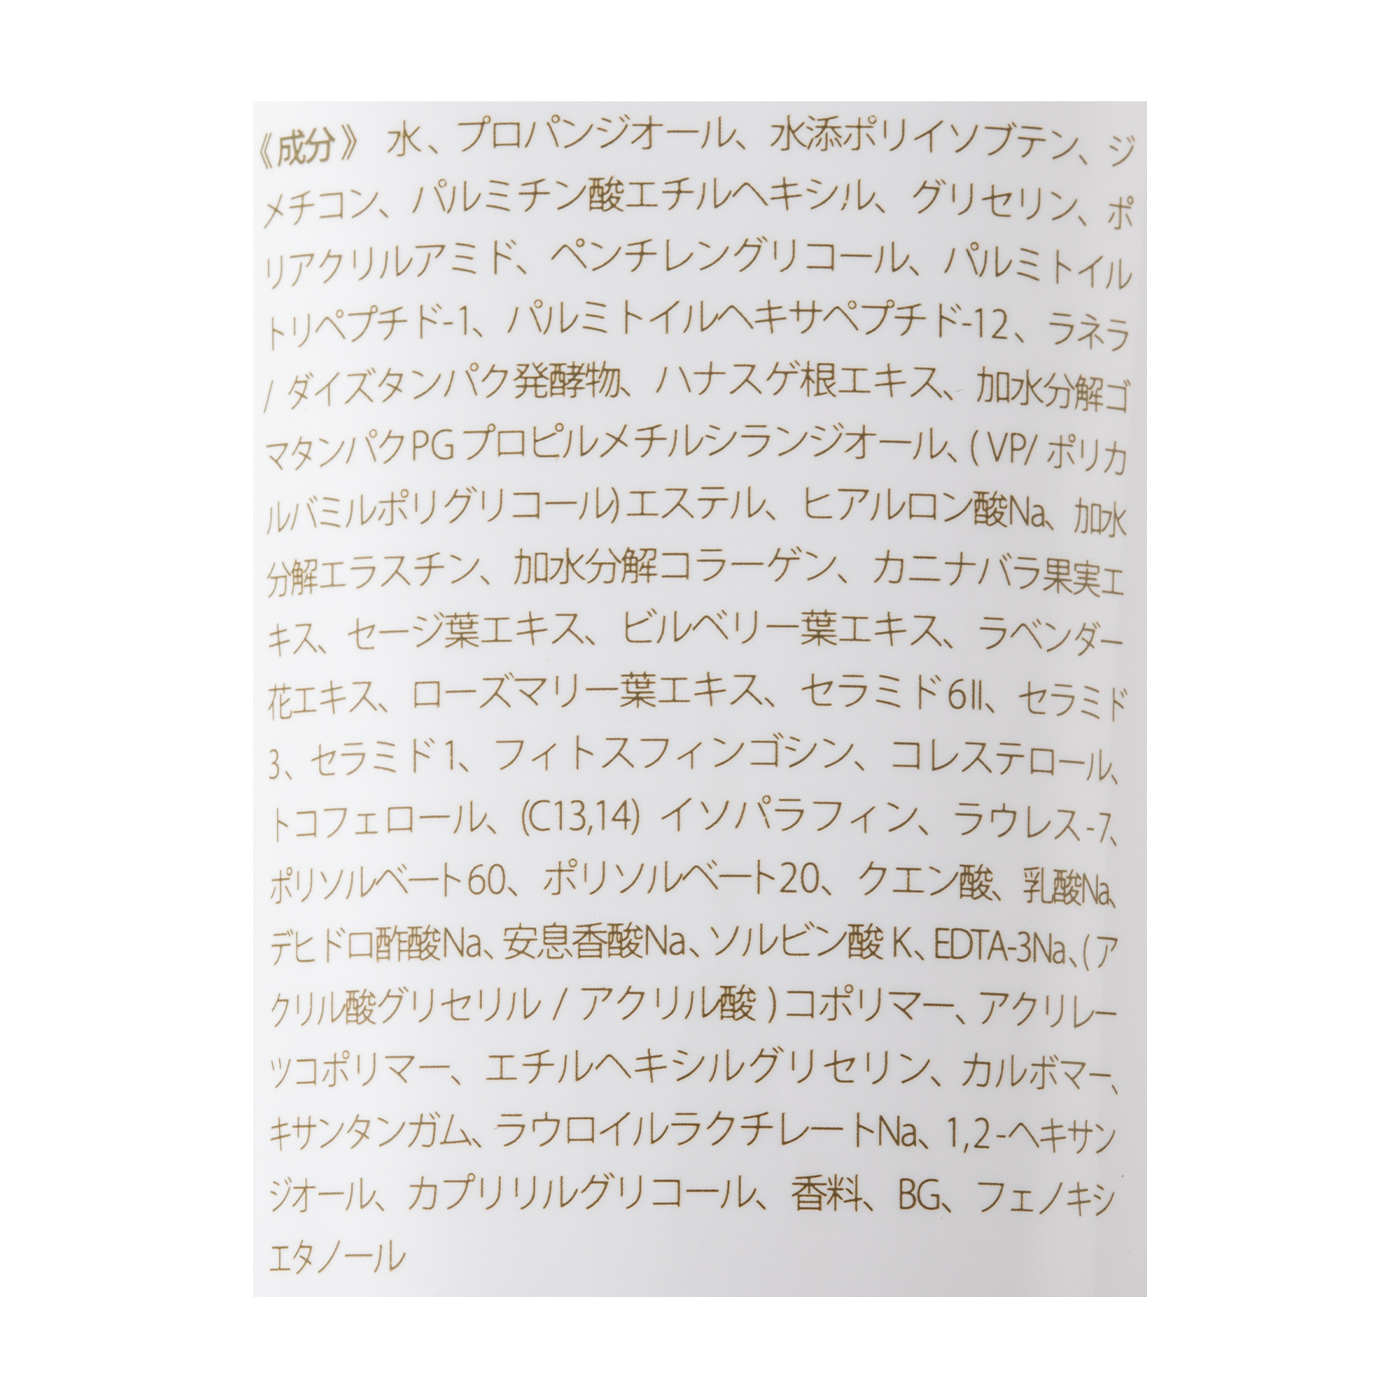 《成分》 水、プロパンジオール、水添ポリイソブテン、ジ
メチコン、パルミチン酸エチルヘキシル、グリセリン、ポ
リアクリルアミド、ペンチレングリコール、パルミトイル
トリペプチド-1、パルミトイルヘキサペプチド-12、ラネラ
/ ダイズタンパク発酵物、ハナスゲ根エキス、加水分解ゴ
マタンパクPGプロピルメチルシランジオール、( VP/ ポリカ
ルバミルポリグリコール)エステル、ヒアルロン酸Na、加水
分解エラスチン、加水分解コラーゲン、カニナバラ果実エ
キス、セージ葉エキス、ビルベリー葉エキス、ラベンダー
花エキス、ローズマリー葉エキス、セラミド6II、セラミド
3、セラミド1、フィトスフィンゴシン、コレステロール、
トコフェロール、(C13,14) イソパラフィン、ラウレス-7、
ポリソルベート60、ポリソルベート20、クエン酸、乳酸Na、
デヒドロ酢酸Na、安息香酸Na、ソルビン酸 K、EDTA-3Na、(ア
クリル酸グリセリル / アクリル酸 )コポリマー、アクリレー
ツコポリマー、エチルヘキシルグリセリン、カルボマー、
キサンタンガム、ラウロイルラクチレートNa、1,2-ヘキサン
ジオール、カプリリルグリコール、香料、BG、フェノキシ
エタノール